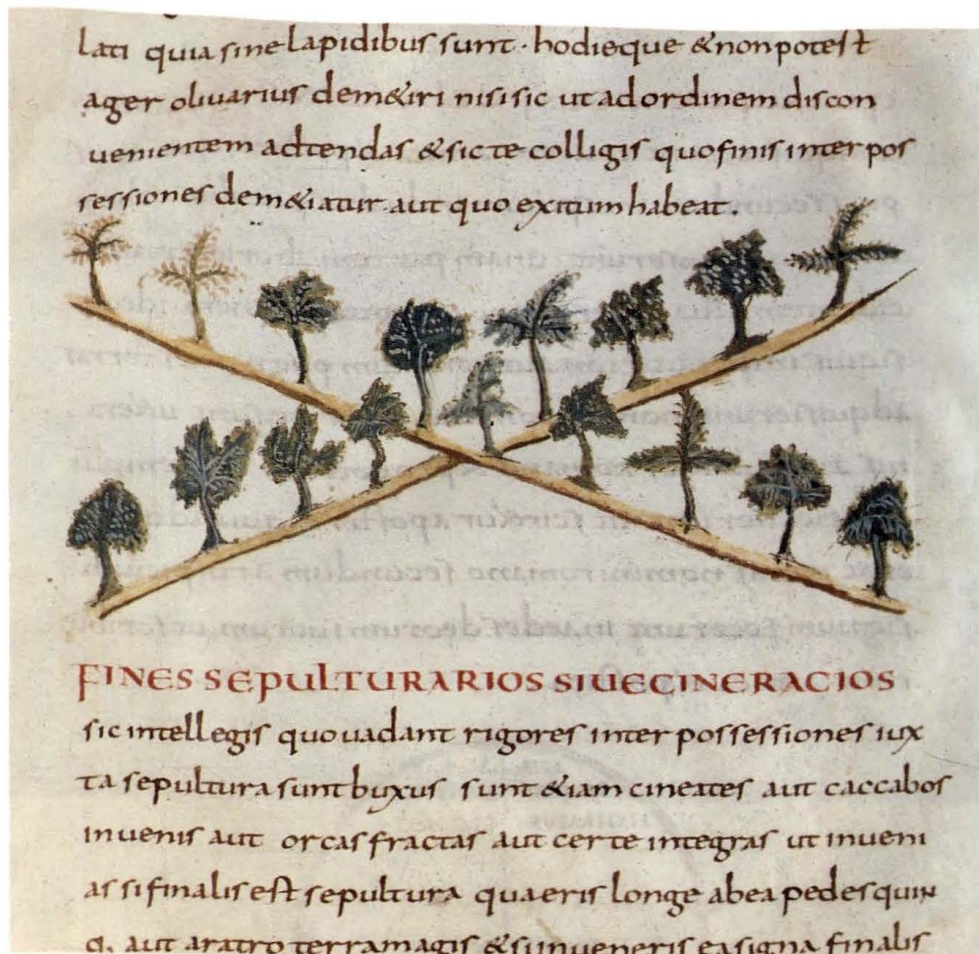 lati quia sine lapidibus sunt · hodieque & non potest
ager olivarius dem&iri nisi sic ut ad ordinem discon
venientem adtendas & sic te colligis quo finis inter pos
sessiones dem&iatur aut quo exitum habeat.
FINES SEPULTURARIOS SIVE CINERACIOS
sic intellegis quo vadant rigores inter possessiones iux
ta sepultura sunt buxus sunt &iam cineres aut caccabos
invenis aut orcas fractas aut certe integras ut inveni
as si finalis est sepultura quaeris longe ab ea pedes quin
q. aut aratro terram agis & si inveneris ea signa finalis